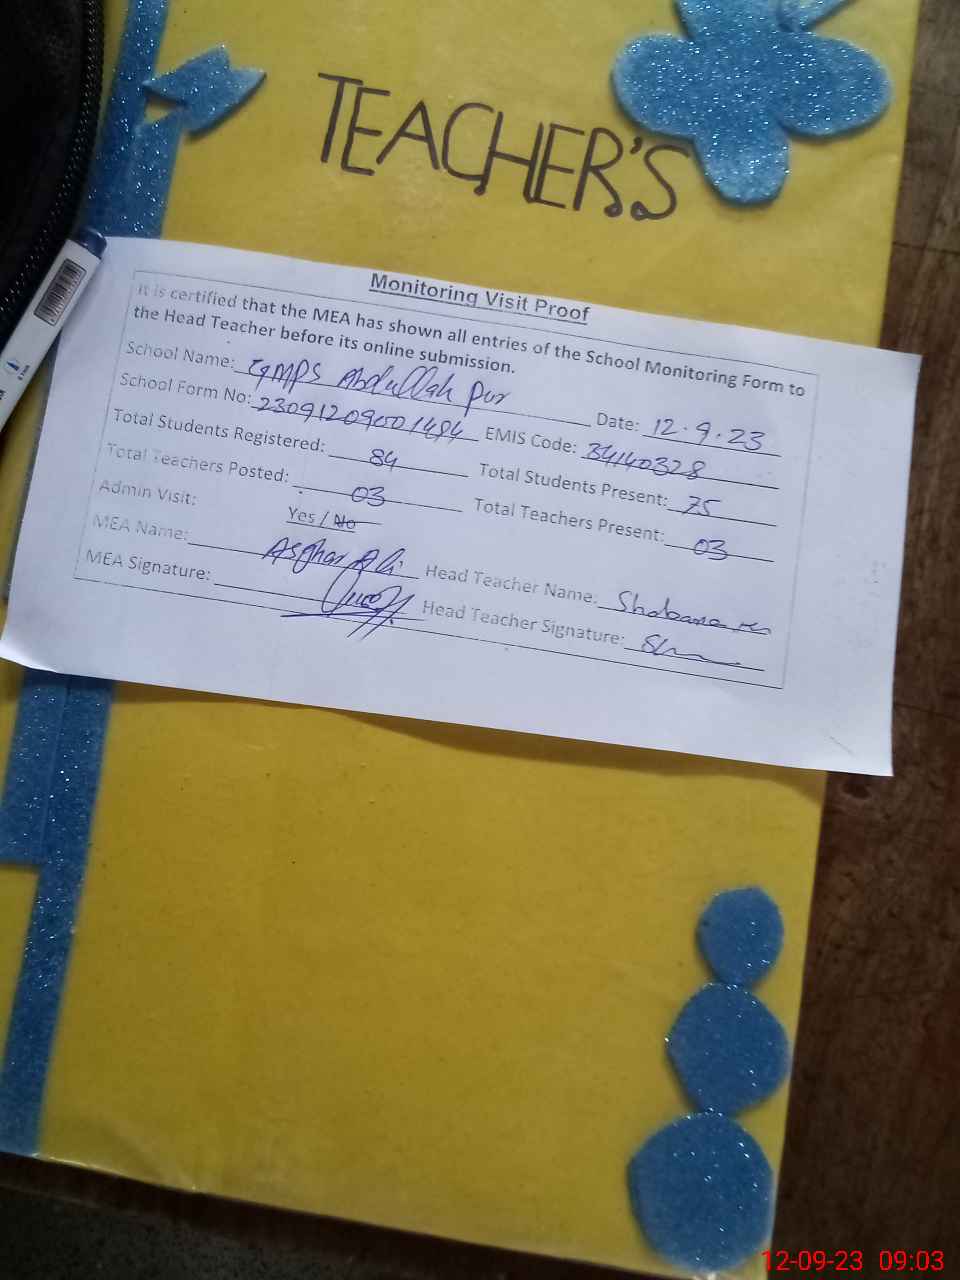 TEACHER'S
Monitoring Visit Proof
It is certified that the MEA has shown all entries of the School Monitoring Form to
the Head Teacher before its online submission.
School Name: GMPS Abdullah Pur Date: 12.9.23
School Form No: EMIS Code: 34140328
Total Students Registered: 84 Total Students Present: 75
Total Teachers Posted: 03 Total Teachers Present: 03
Admin Visit: Yes / No
MEA Name: Asghar Ali Head Teacher Name: Shabana
MEA Signature: Head Teacher Signature:
12-09-23 09:03